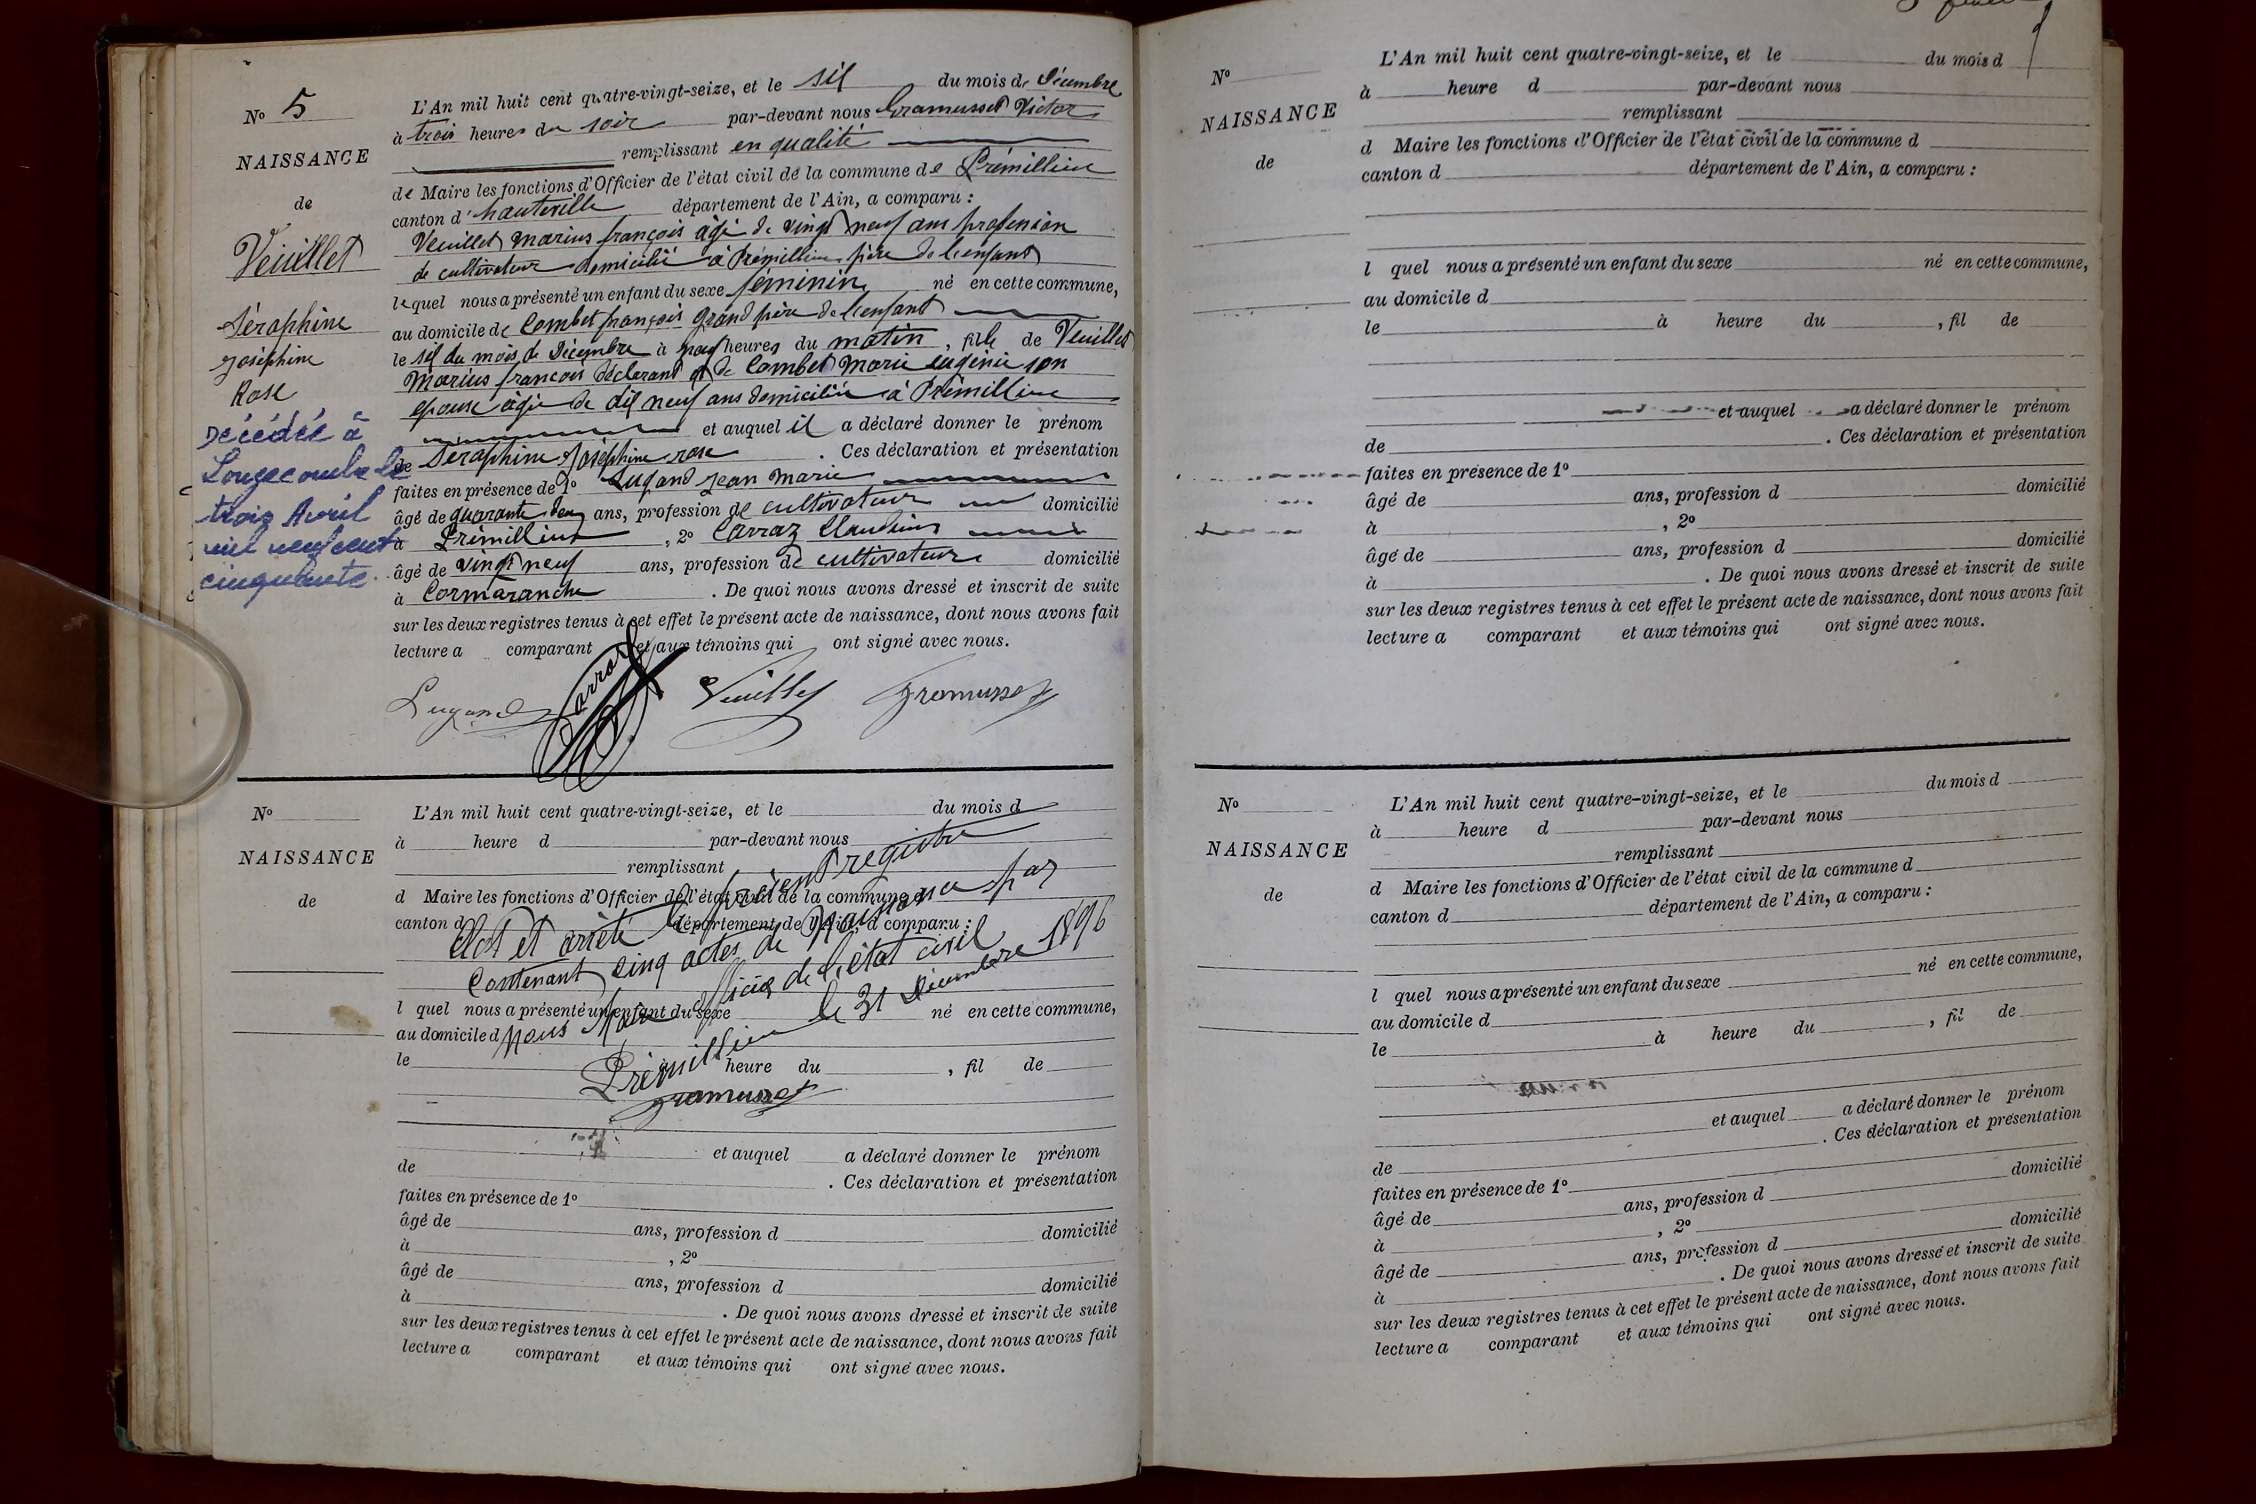 N° 5
NAISSANCE
de
Veuillet
Séraphine
Joséphine
Rose
Décédée à
Longecombe le
trois Avril
mil neuf cent
cinquante.
L'An mil huit cent quatre-vingt-seize, et le six du mois de Décembre
à trois heures du soir par-devant nous Gramusset Victor
remplissant en qualité
de Maire les fonctions d'Officier de l'état civil de la commune de Prémillieu
canton d'hauteville département de l'Ain, a comparu :
Veuillet Marius françois âgé de vingt neuf ans profession
de cultivateur domicilié à Prémillieu père de l'enfant
lequel nous a présenté un enfant du sexe féminin né en cette commune,
au domicile de Combet françois grand père de l'enfant
le six du mois de Décembre à neuf heures du matin, fille de Veuillet
Marius francois déclarant et de Combet Marie eugénie son
epouse âgée de dix neuf ans domiciliée à Prémillieu
et auquel il a déclaré donner le prénom
de Séraphine Joséphine rose . Ces déclaration et présentation
faites en présence de 1° Lugand Jean Marie
âgé de quarante deux ans, profession de cultivateur domicilié
à Prémillieu , 2° Carraz Claudius
âgé de vingt neuf ans, profession de cultivateur domicilié
à Cormaranche . De quoi nous avons dressé et inscrit de suite
sur les deux registres tenus à cet effet le présent acte de naissance, dont nous avons fait
lecture a comparant et aux témoins qui ont signé avec nous.
Lugand Carraz Veuillet Gramusset
N°
NAISSANCE
de
L'An mil huit cent quatre-vingt-seize, et le du mois d
à heure d par-devant nous
remplissant
d Maire les fonctions d'Officier de l'état civil de la commune d
canton d département de l'Ain, a comparu :
Clot et arrêté le présent registre
Contenant cinq actes de Naissance par
Nous Maire officier de l'état civil
Prémillieu le 31 Décembre 1896
Gramusset
l quel nous a présenté un enfant du sexe né en cette commune,
au domicile d
le heure du , fil de
et auquel a déclaré donner le prénom
de . Ces déclaration et présentation
faites en présence de 1°
âgé de ans, profession d domicilié
à , 2°
âgé de ans, profession d domicilié
à . De quoi nous avons dressé et inscrit de suite
sur les deux registres tenus à cet effet le présent acte de naissance, dont nous avons fait
lecture a comparant et aux témoins qui ont signé avec nous.
N°
NAISSANCE
de
L'An mil huit cent quatre-vingt-seize, et le du mois d
à heure d par-devant nous
remplissant
d Maire les fonctions d'Officier de l'état civil de la commune d
canton d département de l'Ain, a comparu :
l quel nous a présenté un enfant du sexe né en cette commune,
au domicile d
le à heure du , fil de
et auquel a déclaré donner le prénom
de . Ces déclaration et présentation
faites en présence de 1°
âgé de ans, profession d domicilié
à , 2°
âgé de ans, profession d domicilié
à . De quoi nous avons dressé et inscrit de suite
sur les deux registres tenus à cet effet le présent acte de naissance, dont nous avons fait
lecture a comparant et aux témoins qui ont signé avec nous.
N°
NAISSANCE
de
L'An mil huit cent quatre-vingt-seize, et le du mois d
à heure d par-devant nous
remplissant
d Maire les fonctions d'Officier de l'état civil de la commune d
canton d département de l'Ain, a comparu :
l quel nous a présenté un enfant du sexe né en cette commune,
au domicile d
le à heure du , fil de
et auquel a déclaré donner le prénom
de . Ces déclaration et présentation
faites en présence de 1°
âgé de ans, profession d domicilié
à , 2°
âgé de ans, profession d domicilié
à . De quoi nous avons dressé et inscrit de suite
sur les deux registres tenus à cet effet le présent acte de naissance, dont nous avons fait
lecture a comparant et aux témoins qui ont signé avec nous.